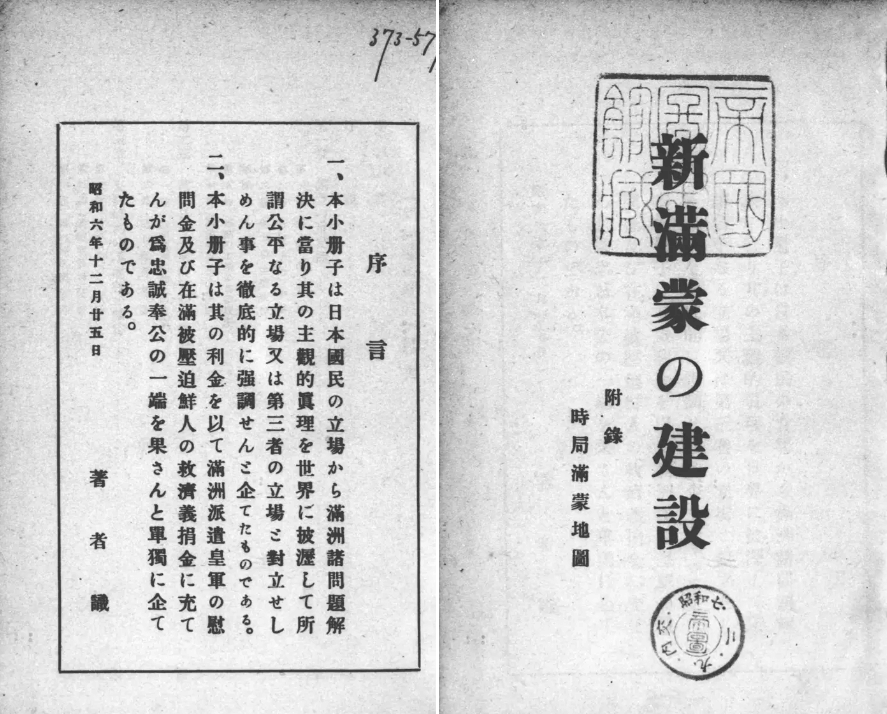 新滿蒙の建設
附錄
時局滿蒙地圖
帝國
圖書
館藏
昭和七・
内交
373-57
序言
一、本小册子は日本國民の立場から滿洲諸問題解
決に當り其の主觀的眞理を世界に披瀝して所
謂公平なる立場又は第三者の立場と對立せし
めん事を徹底的に强調せんと企てたものである。
二、本小册子は其の利金を以て滿洲派遣皇軍の慰
問金及び在滿被壓迫鮮人の救濟義捐金に充て
んが爲忠誠奉公の一端を果さんと單獨に企て
たものである。
昭和六年十二月廿五日
著者識